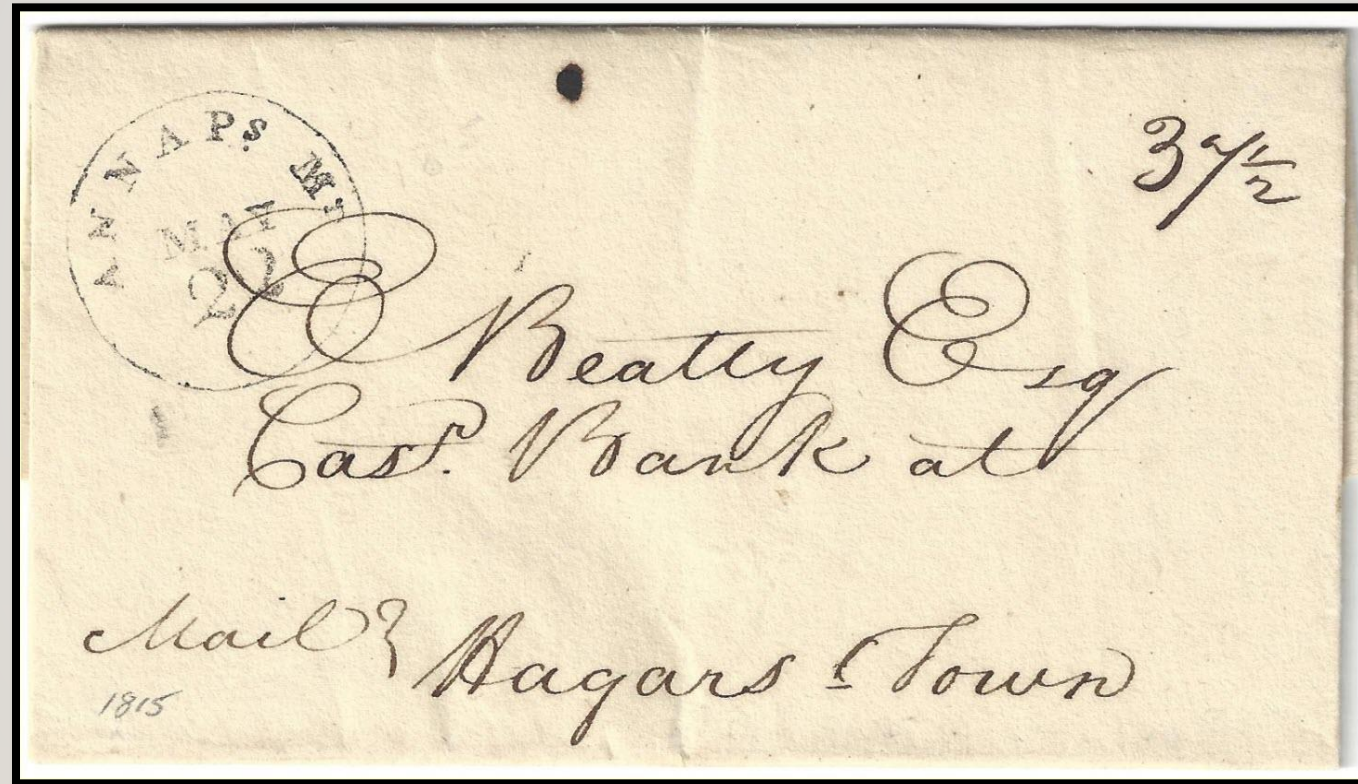 ANNAPs. Md
MAY
22
37 1/2
E Beatty Esq
Casr. Bank at
Mail
Hagars Town
1815